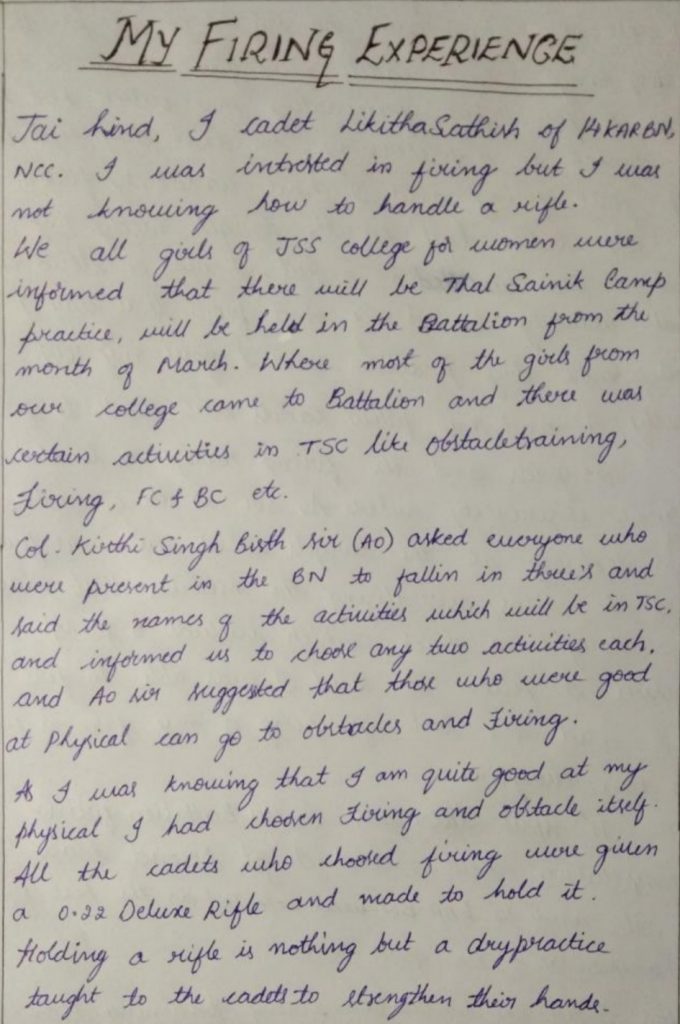 MY FIRING EXPERIENCE
Jai hind, I cadet Likitha Sathish of 14 KAR BN,
NCC. I was intrested in firing but I was
not knowing how to handle a rifle.
We all girls of JSS college for women were
informed that there will be Thal Sainik Camp
practice, will be held in the Battalion from the
month of March. Where most of the girls from
our college came to Battalion and there was
certain activities in TSC like obstacletraining,
Firing, FC & BC etc.
Col. Kirthi Singh Bisth sir (AO) asked everyone who
were present in the BN to fallin in three's and
said the names of the activities which will be in TSC,
and informed us to choose any two activities each,
and AO sir suggested that those who were good
at Physical can go to obstracles and Firing.
As I was knowing that I am quite good at my
physical I had choosen Firing and obstacle itself.
All the cadets who choosed firing were given
a 0.22 Deluxe Rifle and made to hold it.
Holding a rifle is nothing but a drypractice
taught to the cadets to strengthen their hands.